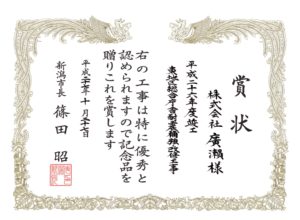 賞状
株式会社 廣瀬様
平成二十六年度竣工
右の工事は特に優秀と
認められますので記念品を
贈りこれを賞します
平成二十七年十月二十七日
新潟市長 篠田 昭